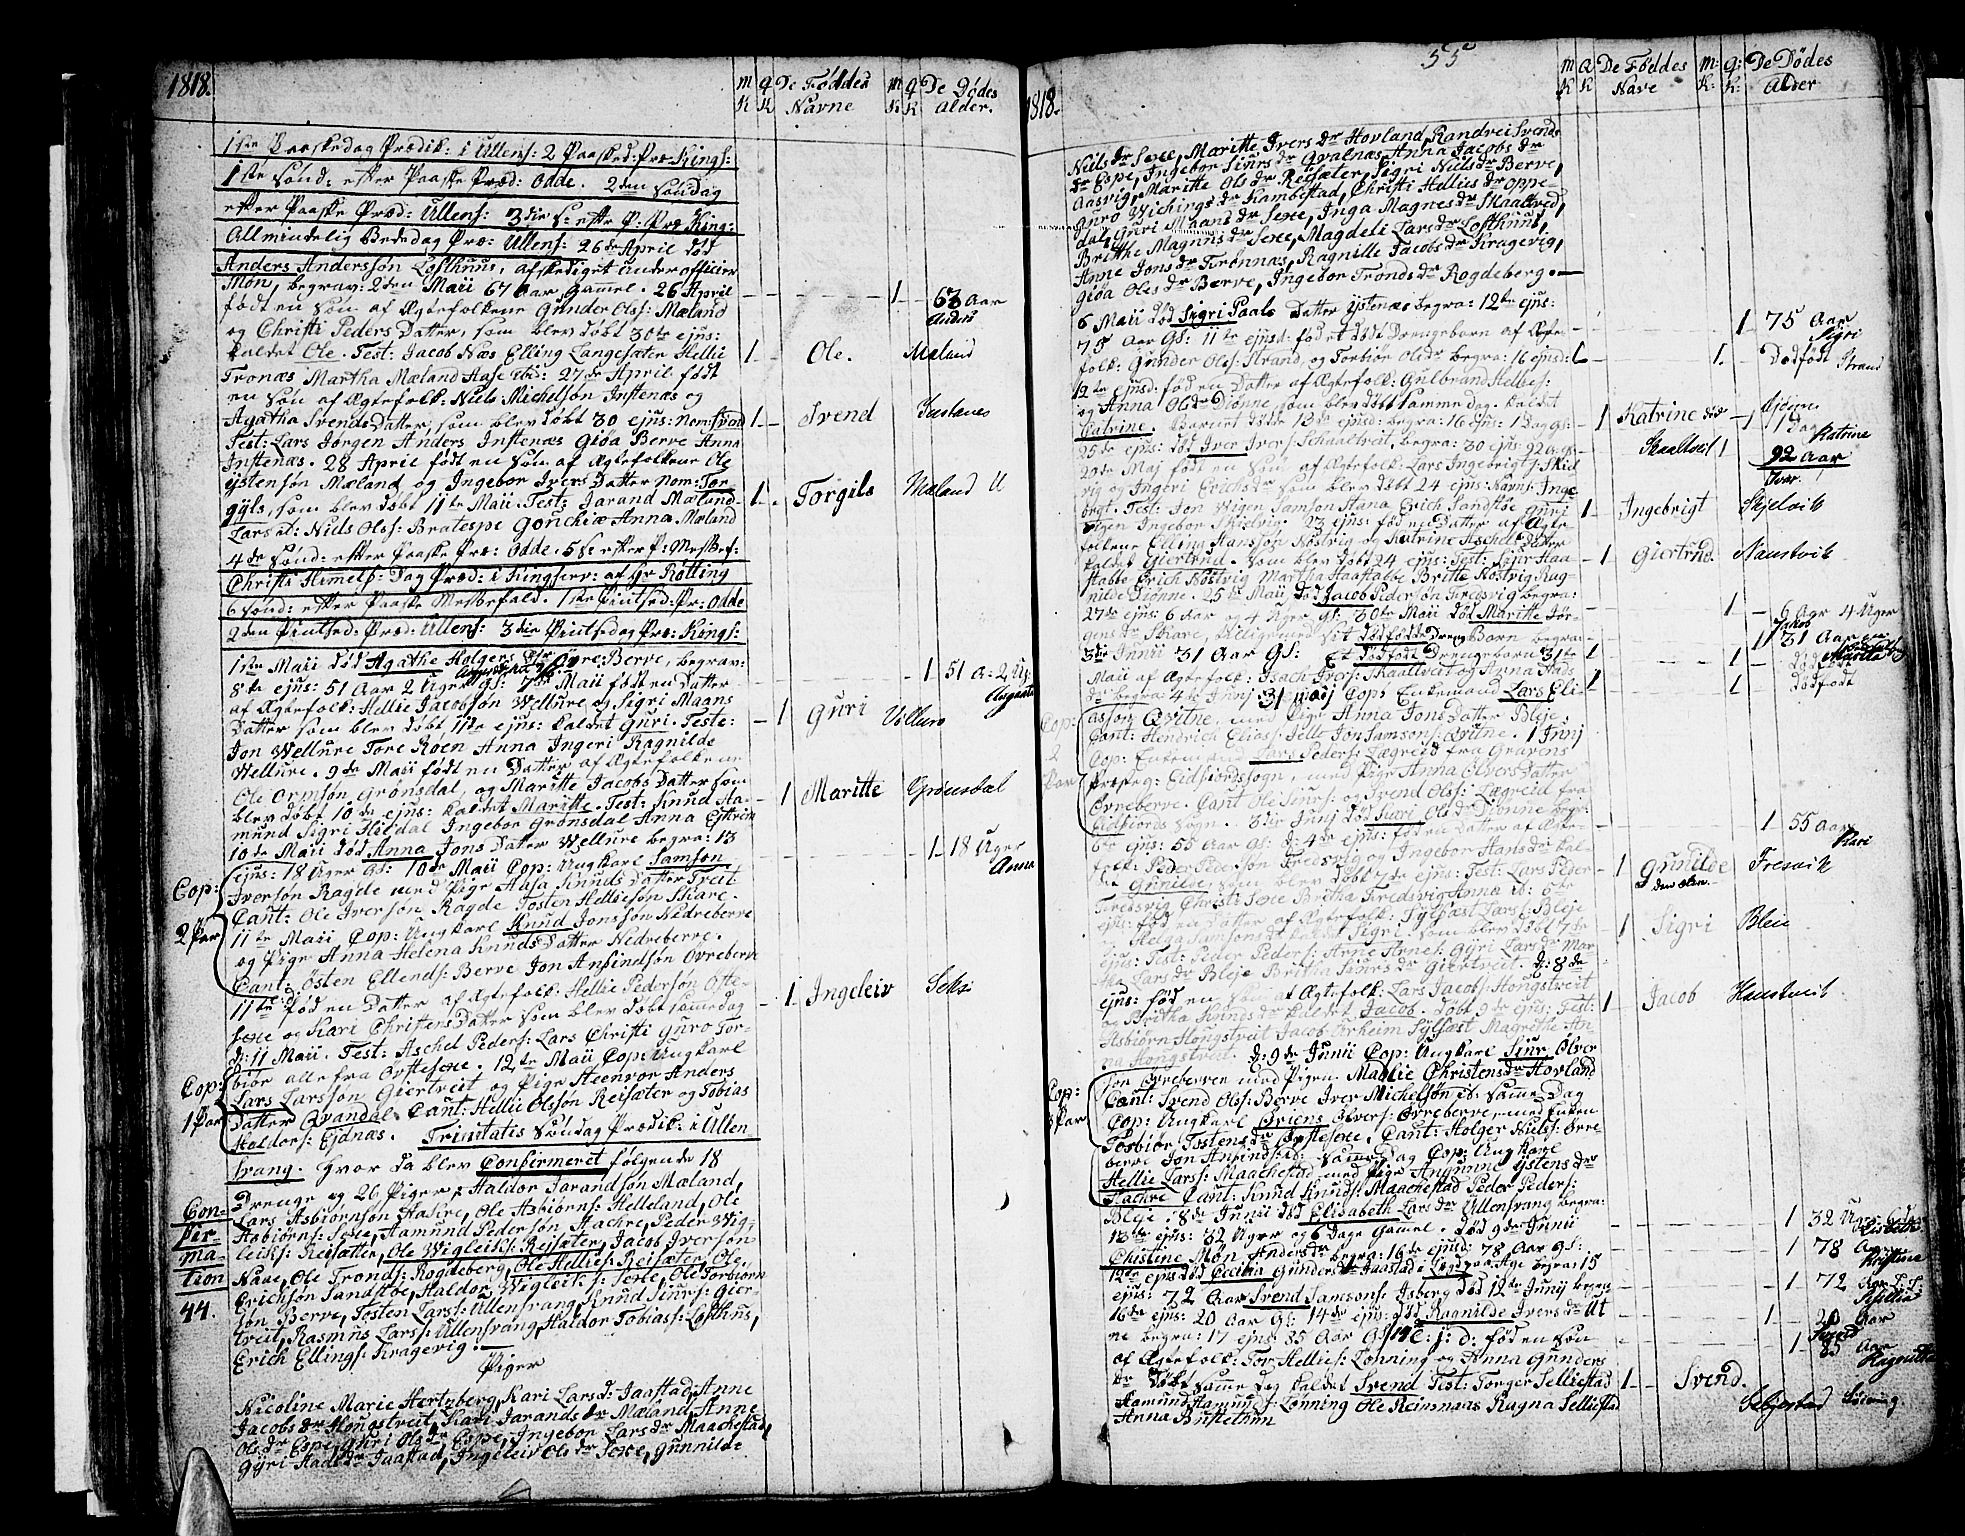 1818.
M K
Q K
De Føddes Navne
M K
Q K
De Dødes Alder.
1ste Paaskedag Prædik: i Ullens: 2 Paasked: Præ: Kings:
1ste Sønd: efter Paaske Præd: Odde. 2den Søndag
efter Paaske Præd: Ullens: 3die S: efter P: Præ: King:
Allmindelig Bededag Præ: Ullens: 26de April død
Anders Anderssøn Lofthuus, afskediget under officier
Møn, begrav: 2den Maii 67 Aar Gamel. 26 April
født en Søn af Ægtefolkene Gunder Ols: Mæland
og Christi Peders Datter, som blev døbt 30te ejus:
kaldet Ole. Test: Jacob Næs Elling Langesæter Hellie
Tronæs Martha Mæland Aase ibid: 27de April født
en Søn af Ægtefolk: Niels Michelsøn Instenæs og
Agatha Svends Datter, som blev døbt 30 ejus: nom: Svend
Test: Lars Jørgen Anders Instenæs Giøa Berve Anna
Instenæs. 28 April født en Søn af Ægtefolkene Ole
Ystensøn Mæland og Ingebor Ivers Datter nom: Tor
gyls, som blev døbt 11te Maii. Test: Jarand Mæland
Lars al: Niels Ols: Bratespe Gonchiæ Anna Mæland
4de Sønd: efter Paaske Præ: Odde. 5 S: efter P: Messef:
Christi Himels: Dag Præd: i Kingserv: af Hr Røtting
6 Sønd: efter Paaske Messefald. 1ste Pintsed: Pr: Odde
2den Pintsed: Præd: Ullens: 3die Pintsedag Præ: Kings:
1ste Maii død Agathe Holgers Dr Øvre Berve, begrav:
8te ejus: 51 Aar 2 Uger Gs: 7de Maii født en Datter
af Ægtefolk: Hellie Jacobsøn Wellure og Sigri Maans
Datter som blev døbt 11te ejus: kaldet Guri. Teste:
Jon Wellure Tore Roen Anna Ingeri Ragnilde
Wellure. 9de Maii født en Datter af Ægtefolkene
Ole Ormsøn Grønsdal, og Maritte Jacobs Datter som
blev døbt 10de ejus: kaldet Maritte. Test: Knud Aa-
mund Sigri Hildal Ingebor Grønsdal Anna Ejtrem
10de Maii død Anna Jons Datter Wellure begra: 13
ejus: 18 Uger Gs: 10de Maii Cop: Ungkarl Samson
Iversøn Ragde med Pige Aasa Knuds Datter Treit
Cant: Ole Iversøn Ragde Tosten Helliesøn Skiare.
11te Maii Cop: Ungkarl Knud Jonssøn Nedreberve
og Pige Anna Helena Knuds Datter Nedreberve.
Cant: Østen Ellends: Berve Jon Ansindsøn Ovreberve
11te fød en Datter af Ægtefolk: Hellie Pedersøn Ofte-
sexe og Kari Christens Datter som blev døbt samedag
d: 11 Maii. Test: Aschel Peders: Lars Christi Guro Tor-
biør alle fra Opstesexe. 12te Maii Cop: Ungkarl
Lars Larssøn Giertveit og Pige Steenvor Anders
Datter Qvandal Cant: Hellie Olssøn Reisæter og Tobias
Haldors: Ejdnæs. Trinitatis Søndag Prædik: i Ullen-
svang. Hvor da blev Confirmeret følgende 18
Drenge og 26 Piger, Haldor Jarandsøn Mæland,
Lars Asbiørnsøn Haskre, Ole Asbiørns: Helleland, Ole
Asbiørns: Sexe, Aamund Pedersøn Aachre, Peder Wig-
leiks: Reisæter, Ole Wigleiks: Reisæter, Jacob Iversøn
Naae, Ole Tronds: Rogdeberg, Ole Hellies: Reisæter, Ole
Erichsøn Sandstøe, Haldor Wigleiks: Sexe, Ole Torbiørn
søn Berve, Tosten Lars: Ullensvang, Knud Siurs: Gier-
tveit, Rasmus Lars: Ullensvang, Haldor Tobias: Lofthuus,
Erich Ellings: Kragevig.
Piger
Nicoline Marie Hertzberg, Kari Larsd: Jaastad, Anne
Jacobs dr Hongstveit, Kari Jarands dr Mæland, Anne
Ols dr Espe, Guri Ols dr Espe, Ingebor Lars dr Maachestad,
Gyri Aads dr Jaastad, Ingeleiv Ols dr Sexe, Gunnilde
Cop: 2 Par
Cop: 1 Par
Con- fir- ma- tion 44.
1 63 Aar Anders
1 Ole. Mæland
1 Svend Instenes
1 Torgils Mæland U
1 51 A: 2 Ug. Aagaate
1 Guri Velluro
1 Maritte Grønsdal
1 18 Uger Anna
1 Ingeleiv Seksi
55
1818.
M K
Q K
De Føddes Navne
M: K:
Q: K:
De Dødes Alder
Niels dr Sexe, Maritte Ivers dr Hovland, Randvei Svends
dr Espe, Ingebor Siurs dr Qvalnæs, Anna Jacobs dr
Aasvig, Maritte Ols dr Reisæter, Sigri Niels dr Berve,
Guro Wichings dr Kambestad, Christi Hellies dr Oppe-
dal, Guri Maans dr Sexe, Inga Magnes dr Skaaltved,
Britthe Magnus dr Sexe, Magdeli Lars dr Lofthuus,
Anne Jons dr Tronnæs, Ragnille Jacobs dr Kragevig,
Giøa Oles dr Berve, Ingebor Tronds dr Rogdeberg.
6 Maii død Sigri Paals Datter Ystenæs begra: 12te ejus:
75 Aar Gs: 11te ejus: fød et dødt Drengebarn af Ægte-
folk: Gunder Ols: Strand, og Torbiør Ols dr begra: 16 ejusd:
12te ejusd: fød en Datter af Ægtefolk: Gulbrand Helles:
og Anna Ols dr Diønne som blev døbt samme Dag. kaldet
Catrine. Barnet døde 13de ejusd: begra: 16 ejus: 1 Dag Gs:
25de ejus: død Iver Ivers: Schaaltveit, begra: 30 ejus: 92 A: Gs:
2de Maj født en Søn af Ægtefolk: Lars Ingebrigts: Skiel
vig og Ingeri Erichs dr som blev døbt 24 ejus: Navns: Inge
brigt. Test: Jon Wigen Samson Aana Erich Sandstøe Gunj
Wigen Ingebor Skielvig. 23 ejus: fød en Datter af Ægte-
folkene Elling Hanssøn Nøstvig og Katrine Aschels Datter
kaldet Giertrud. som blev døbt 24 ejus: Test: Siur Haa-
stabbe Erich Nøstvig Martha Haastabbe Britte Nøstvig Rag-
nilde Diønne. 25te Maii død Jacob Pedersøn Fredsvig begra:
27de ejus: 6 Aar og 4 Uger Gs: 30te Maii død Maritte Jør-
gens dr Skiare, tilligemed sit dødfødde Dreng Barn begra:
3die Junii 31 Aar Gs: Et dødfødt Drengebarn 31te
Maii af Ægtefolk: Isach Ivers: Skaaltveit og Anna Aads
dr begra: 4de Junj 31 Maij Cop: Enkemand Lars Eli-
assøn Qvitne, med Pige Anna Jons Datter Bleje.
Cant: Hendrich Elias: Sille Jon Samsons: Qvitne. 1 Junj
Cop: Enkemand Lars Peders: Lægreid fra Gravens
Præsteg: Eidfiords sogn, med Pige Anna Olvers Datter
Øvreberve. Cant Ole Siurs: og Svend Ols: Lægreid fra
Eidfiords Sogn. 3die Junj død Kari Ols dr Diønne begr:
6te ejus: 55 Aar Gs: d: 4de ejus: fød en Datter af Ægte-
folk: Peder Pedersøn Fredsvig og Ingebor Hans dr kal-
de Gunilde som blev døbt 7de ejus: Test: Lars Peder
Fredsvig Christi Sexe Britha Fredsvig Anna ib: 6te
ejus: fød en Datter af Ægtefolk: Sylfæst Lars: Bleje
og Helga Samsons dr kaldet Sigri som blev døbt 7de
ejus: Test: Peder Peders: Arne Arnes: Gyri Lars dr Mar
the Lars dr Bleje Britha Siurs dr Giertveit. d: 8de
ejus: fød en Søn af Ægtefolk: Lars Jacobs: Hongstveit
og Britha Svends dr kaldet Jacob. døbt 9de ejus: Test:
Asbiørn Hongstveit Jacob Orheim Sylfæst Magrethe An-
na Hongstveit. d: 9de Junii Cop: Ungkarl Siur Olver
søn Øvreberve med Pigen Madlie Christens dr Hovland
Cant: Svend Ols: Berve Iver Michelsøn ib: samme Dag
Cop: Ungkarl Briens Olvers: Øvreberve, med Enken
Torbiør Tostens dr Opstesexe. Cant: Holger Niels: Øvre-
berve Jon Ansinds: ib: samme Dag Cop: Ungkarl
Hellie Lars: Maachestad med Pige Angunne Ystens dr
Aachre Cant: Knud Knuds: Maachestad Peder Peders:
Bleje. 8de Junii død Elisabeth Lars dr Ullensvang begra:
13de ejus: 32 Uger og 6 Dage Gamel. død 9de Junii
Christine Møn Anders dr begra: 16te ejusd: 78 Aar Gs:
12te ejus død Cecilia Gunders dr Jaastad i Lægd paa Age begra: 15
ejus: 72 Aar Svend Samsons: Isberg død 12te Junij begra
16te ejus: 20 Aar Gs: 14de ejus: død Ragnilde Ivers dr Ut
ne begra: 17 ejus: 85 Aar Gs: 14de: j: d: fød en Søn
af Ægtefolk: Tor Hellies: Lønning og Anna Gunders
dr døbt samme Dag kaldet Svend Test: Torger Selliestad
Aamund Aamunds: Lønning Ole Reinnaas Ragna Selliestad
Anna Bustethun
Cop: 2 Par
Cop: 3 Par
1 75 Aar Sigri
1 1. Dødfødt Strand
1 Katrine død 1 1 Dag Katrine
Skaaltveit 1 92 Aar Ivar.
1 Ingebrigt Skjelvik
1 Giertrud. Naustvik
1 6 Aar 4 Uger Jakob
1 31 Aar Maritta
1 1 dødfødt
1 1 dødfødt
1 55 Aar Kari
1 Gunilde Fresvik
1 Sigri Bleie
1 Jacob Haustveit
1 32 Uger 6 dage Lisbeth
1 78 Aar Kristine
1 72 Aar
1 20 Aar Svend
1 85 Aar Ragnilda
1 Svend. Seljestad Lønning